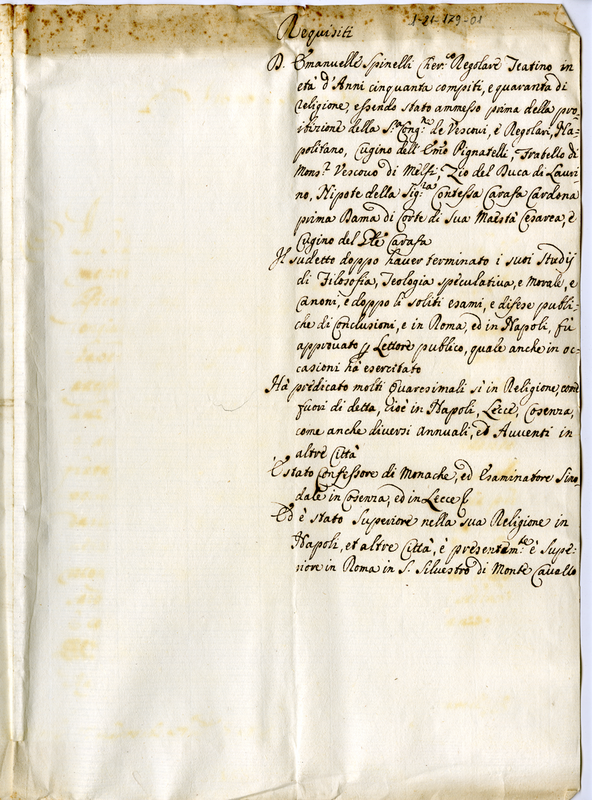 1-21-179-01
Requisiti
D. Emanuelle Spinelli Cher.co Regolare Teatino in
età d'Anni cinquanta compiti, e quaranta di
religione, essendo stato ammesso prima della pro-
ibizione della S. Cong.ne de Vescovi, è Regolari, Na-
politano, Cugino dell'Emo Pignatelli, Fratello di
Mons.r Vescovo di Melfi, Zio del Duca di Lauri
no, Nipote della Sig.ra Contessa Carafa Cardona
prima Dama di Corte di Sua Maestà Cesarea, è
Cugino del Carafa
Il sudetto doppo haver terminato i suoi Studij
di Filosofia, Teologia speculativa, e morale, e
Canoni, è doppo li soliti esami, e difese publi-
che di Conclusioni, e in Roma, ed in Napoli, fù
approvato p Lettore publico, quale anche in oc-
casioni hà esercitato
Hà predicato molti Quaresimali sì in Religione, come
fuori di detta, cioè in Napoli, Lecce, Cosenza,
come anche diversi annuali, ed Avventi in
altre Città
È stato Confessore di Monache, ed Esaminatore Sino-
dale in Cosenza, ed in Lecce
Ed è stato Superiore nella sua Religione in
Napoli, et altre Città, è presentem.te è Supe-
riore in Roma in S. Silvestro di Monte Cavallo